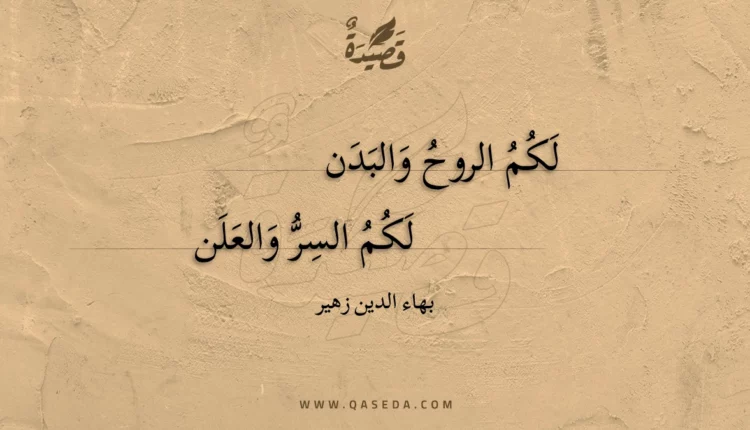 قَصِيْدَةٌ
لَكُمُ الروحُ وَالبَدَن
لَكُمُ السِرُّ وَالعَلَن
بهاء الدين زهير
WWW.QASEDA.COM